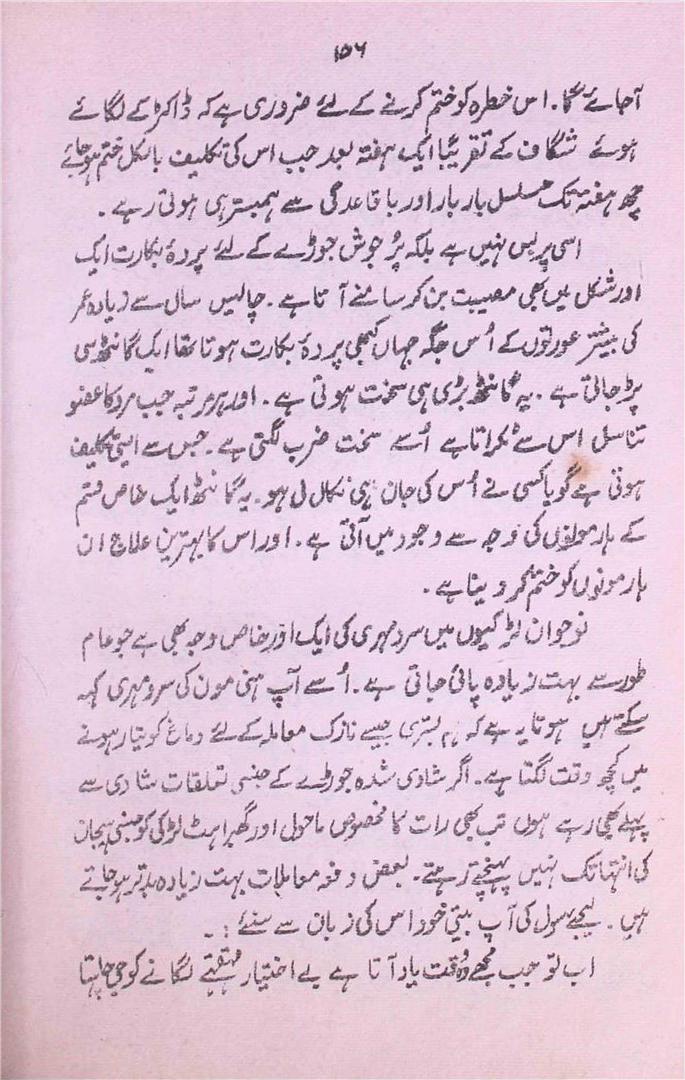 ۱۵۶
آجائے گا۔ اس خطرہ کو ختم کرنے کے لئے ضروری ہے کہ ڈاکٹر کے لگائے
ہوئے شگاف کے تقریباً ایک ہفتہ بعد جب اس کی تکلیف بالکل ختم ہوجائے
چھ ہفتہ تک مسلسل بار بار اور باقاعدگی سے ہمبستری ہوتی رہے ۔
اسی پر بس نہیں ہے بلکہ پُر جوش جوڑے کے لئے پردۂ بکارت ایک
اور شکل میں بھی مصیبت بن کر سامنے آتا ہے ۔ چالیس سال سے زیادہ عمر
کی بیشتر عورتوں کے اُس جگہ جہاں کبھی پردۂ بکارت ہوتا تھا ایک گانٹھ سی
پڑ جاتی ہے ۔ یہ گانٹھ بڑی ہی سخت ہوتی ہے ۔ اور ہر مرتبہ جب مرد کا عضو
تناسل اس سے ٹکراتا ہے اُسے سخت ضرب لگتی ہے ۔ جس سے ایسی تکلیف
ہوتی ہے گویا کسی نے اُس کی جان ہی نکال لی ہو ۔ یہ گانٹھ ایک خاص قسم
کے ہارمونوں کی وجہ سے وجود میں آتی ہے ۔ اور اس کا بہترین علاج ان
ہارمونوں کو ختم کر دینا ہے ۔
نوجوان لڑکیوں میں سرد مہری کی ایک اور خاص وجہ بھی ہے جو عام
طور سے بہت زیادہ پائی جاتی ہے ۔ اُسے آپ ہنی مون کی سرد مہری کہہ
سکتے ہیں ہوتا یہ ہے کہ ہم بستری جیسے نازک معاملہ کے لئے دماغ کو تیار ہونے
میں کچھ وقت لگتا ہے ۔ اگر شادی شدہ جوڑے کے جنسی تعلقات شادی سے
پہلے بھی رہے ہوں تب بھی رات کا مخصوص ماحول اور گھبراہٹ لڑکی کو جنسی ہیجان
کی انتہا تک نہیں پہنچنے دیتے ۔ بعض دفعہ معاملات بہت زیادہ بدتر ہوجاتے
ہیں ۔ لیجئے سول کی آپ بیتی خود اس کی زبان سے سنئے :۔
اب تو جب مجھے وہ وقت یاد آتا ہے بے اختیار قہقہے لگانے کو جی چاہتا